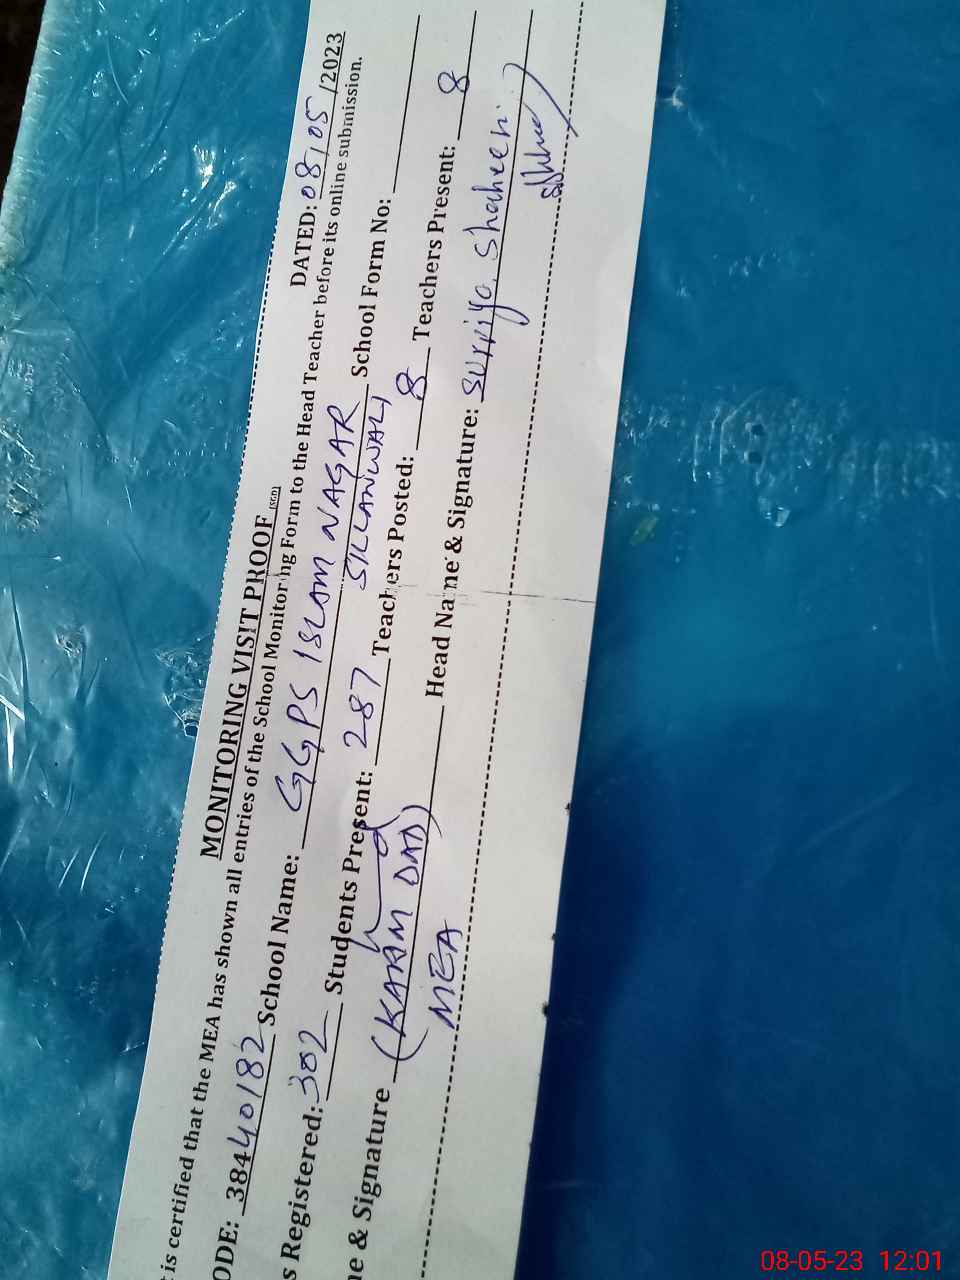 MONITORING VISIT PROOF (SGD)
DATED: 08/05/2023
t is certified that the MEA has shown all entries of the School Monitoring Form to the Head Teacher before its online submission.
ODE: 38440182 School Name: GGPS ISLAM NAGAR SILLANWALI School Form No:
s Registered: 302 Students Present: 287 Teachers Posted: 8 Teachers Present: 8
ne & Signature (KARAM DAD) Head Name & Signature: Surriya Shaheen
MEA
08-05-23 12:01